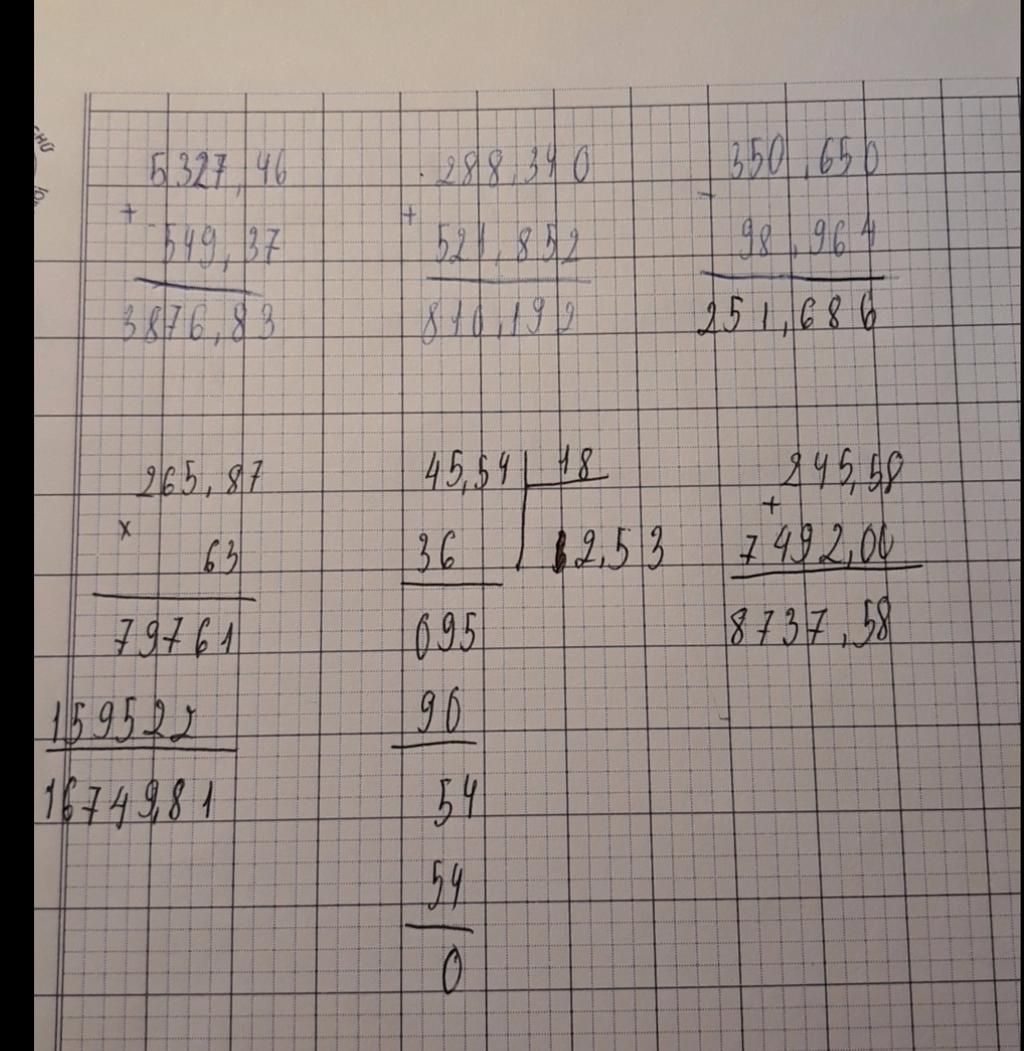 5327,46
+
549,37
3876,83
288,340
+
521,852
810,192
350,650
-
98,964
251,686
265,87
x
63
79761
159522
16749,81
45,54 18
36 2,53
095
90
54
54
0
245,58
+
7492,00
8737,58